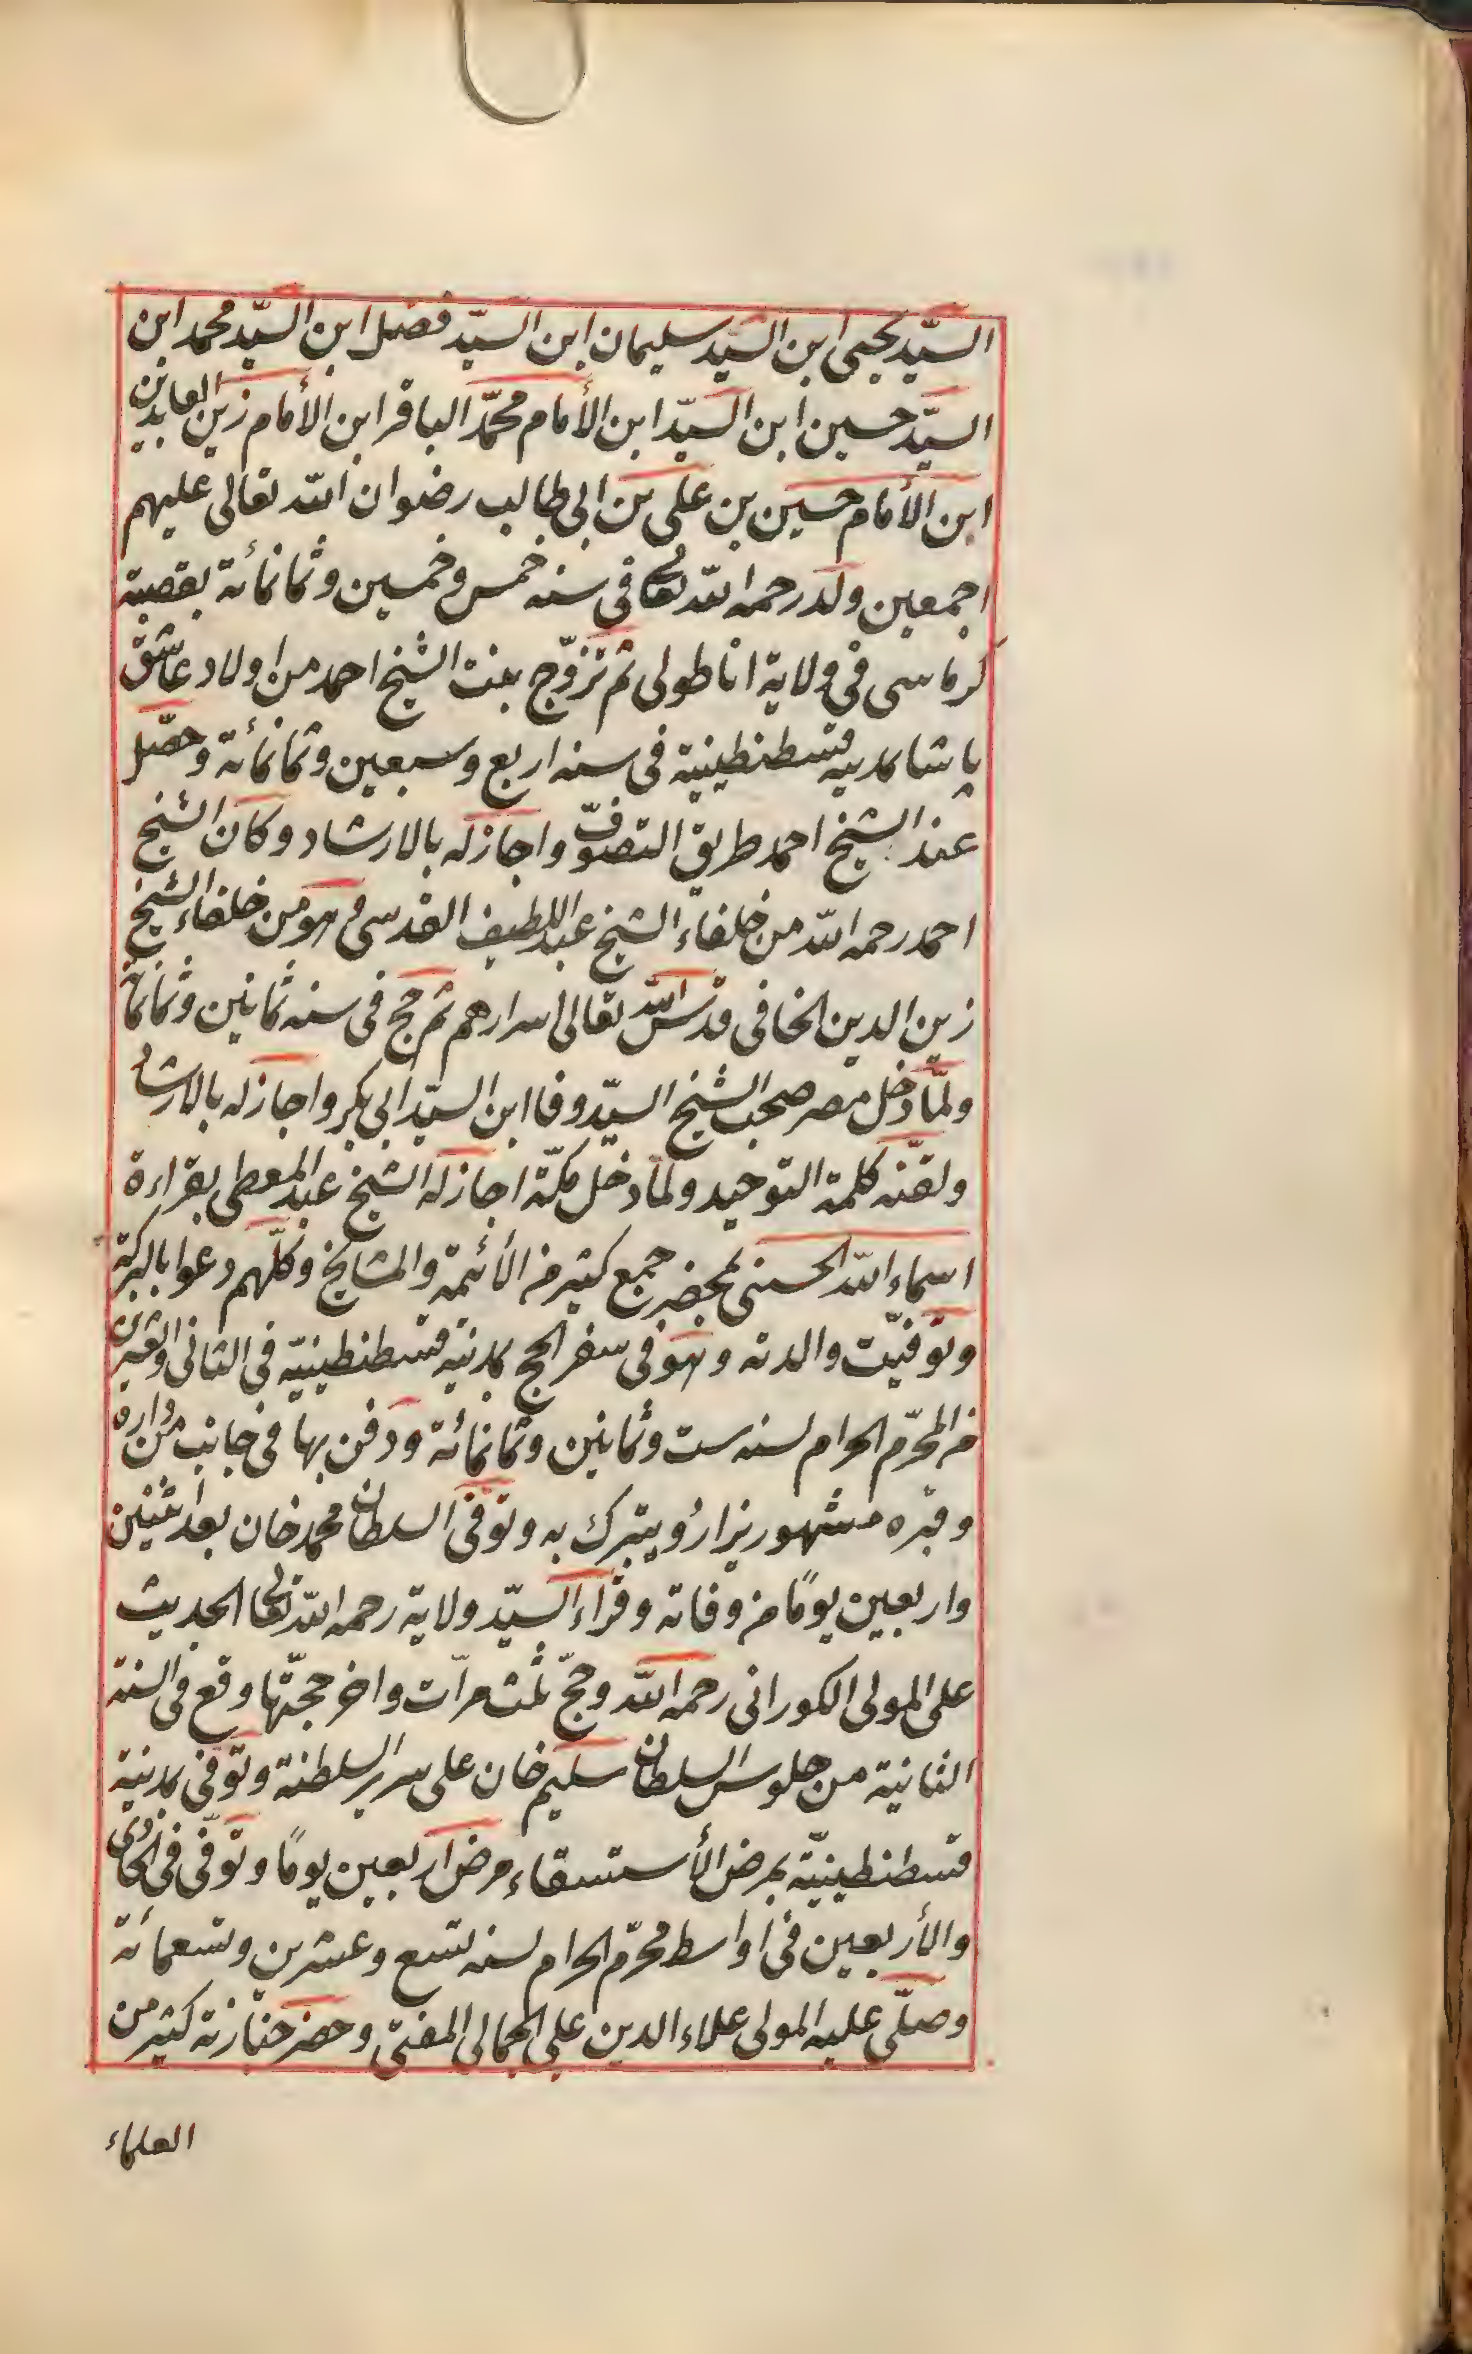 السيّد يحيى ابن السيد سليمان ابن السيّد فضل ابن السيّد محمد ابن
السيّد حسين ابن السيّد ابن الأمام محمّد الباقر ابن الأمام زين العابدين
ابن الأمام حسين بن على بن ابى طالب رضوان الله تعالى عليهم
اجمعين ولد رحمه الله تعالى فى سنه خمس وخمسين وثمانمائة بقصبة
كرماسى فى ولاية اناطولى ثم تزوّج بنت الشيخ احمد من اولاد عاشق
پاشا بمدينه قسطنطينية فى سنه اربع وسبعين وثمانمائة وحصّل
عند الشيخ احمد طريق التصوّف واجاز له بالارشاد وكان الشيخ
احمد رحمه الله من خلفاء الشيخ عبد اللطيف القدسى وهو من خلفاء الشيخ
زين الدين الخافى قدّس الله تعالى اسرارهم ثم حج فى سنه ثمانين وثمانمائة
ولمّا دخل مصر صحب الشيخ السيّد وفا ابن السيّد ابى بكر واجاز له بالارشاد
ولقّنه كلمة التوحيد ولمّا دخل مكّة اجاز له الشيخ عبد المعطى بقراءة
اسماء الله الحسنى بمحضر جمع كثير من الأئمة والمشايخ وكلّهم دعوا بالبركة
وتوفيّت والدته وهو فى سفر الحج بمدينة قسطنطينيّة فى الثانى والعشرين
من المحرّم الحرام لسنه ست وثمانين وثمانمائة ودفن بها فى جانب من داره
وقبره مشهور يزارُ ويتبرك به وتوفى السلطان محمد خان بعد اثنين
واربعين يومًا من وفاته وقراء السيّد ولاية رحمه الله تعالى الحديث
على المولى الكورانى رحمه الله وحجّ ثلث مرّات واخر حجّتها وقع فى السنة
الثانية من جلوس السلطان سليم خان على سرير السلطنة وتوفى بمدينة
قسطنطينيّة بمرض الأستسقاء مرض اربعين يومًا وتوفّى فى الحادى
والأربعين فى اواسط محرّم الحرام لسنه تسع وعشرين وتسعمائة
وصلّى عليه المولى علاء الدين على الجمالى المفتى وحضر جنازته كثير من
العلماء